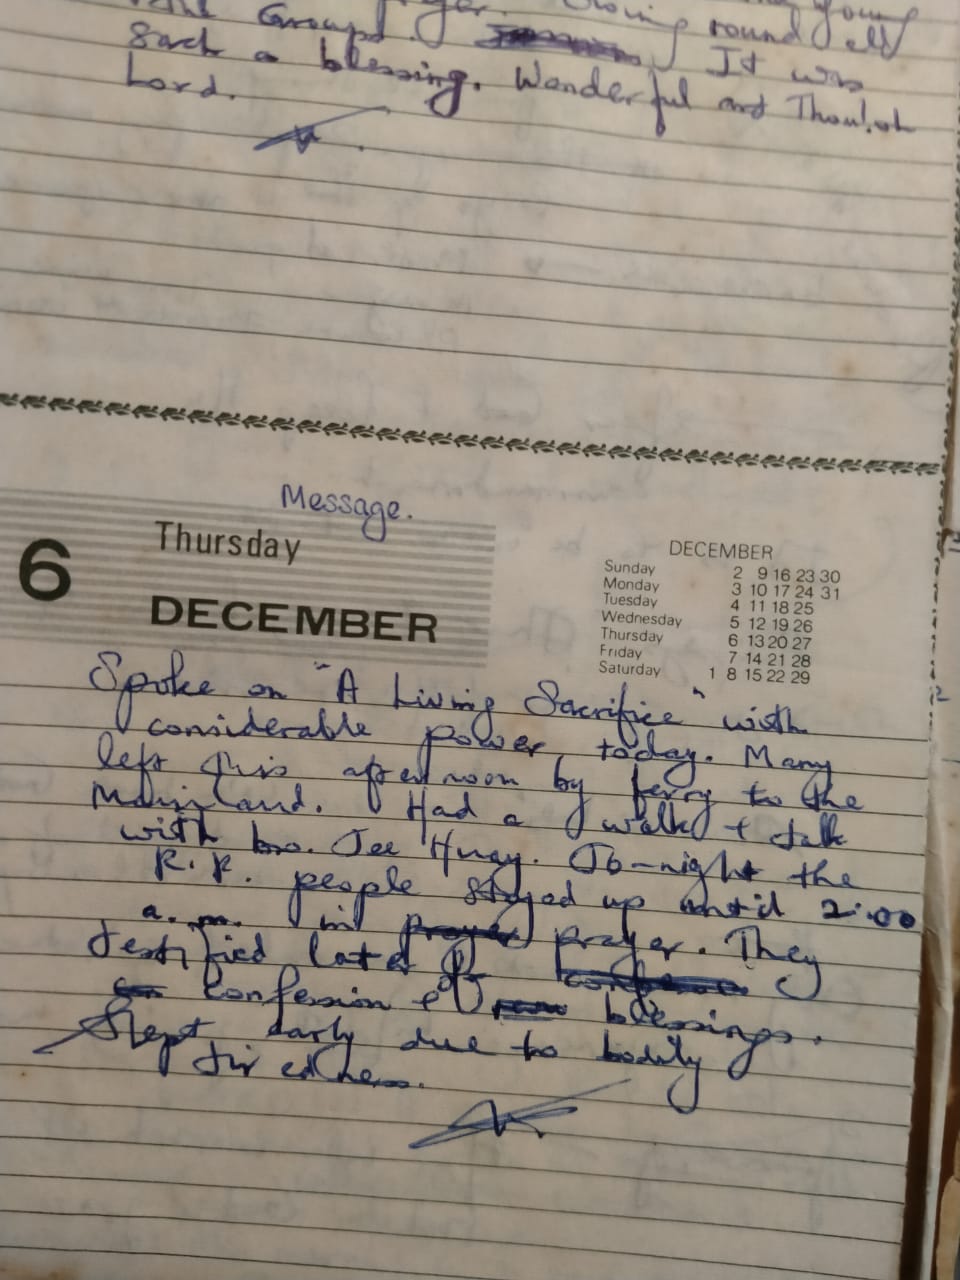 young
the Groups round all
Such a blessing. It was
Lord. Wonderful and
Message.
6 Thursday
DECEMBER
DECEMBER
Sunday 2 9 16 23 30
Monday 3 10 17 24 31
Tuesday 4 11 18 25
Wednesday 5 12 19 26
Thursday 6 13 20 27
Friday 7 14 21 28
Saturday 1 8 15 22 29
Spoke on "A Living Sacrifice" with
considerable power today. Many
left this afternoon by ferry to the
Mainland. Had a walk + talk
with bro. Jee Huey. To-night the
R.K. people stayed up until 2.00
a.m. in prayer. They
testified later of
confession & blessings.
Slept early due to bodily
tiredness.